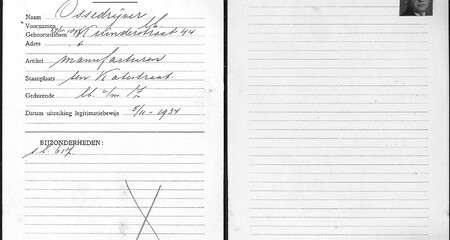 Naam Ossedrijver
Voornamen
Geboortedatum Kuinderstraat 44
Adres
Artikel manufacturen
Staanplaats ten Katestraat
Gedurende
Datum uitreiking legitimatiebewijs 5/11 - 1934
BIJZONDERHEDEN:
s.b. 617